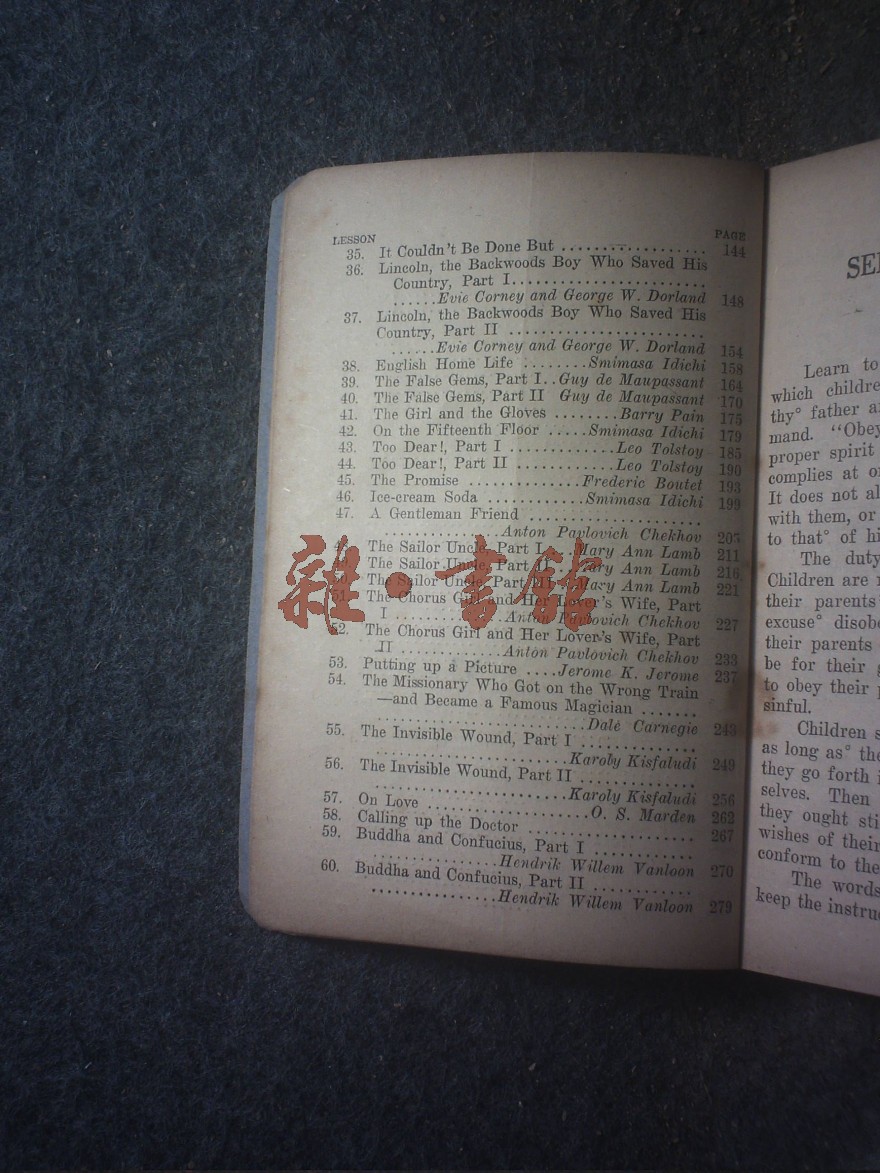 LESSON PAGE
35. It Couldn't Be Done But .................. 144
36. Lincoln, the Backwoods Boy Who Saved His
Country, Part I........................
......Evie Corney and George W. Dorland 148
37. Lincoln, the Backwoods Boy Who Saved His
Country, Part II ........................
......Evie Corney and George W. Dorland 154
38. English Home Life ........Smimasa Idichi 158
39. The False Gems, Part I..Guy de Maupassant 164
40. The False Gems, Part II Guy de Maupassant 170
41. The Girl and the Gloves ........Barry Pain 175
42. On the Fifteenth Floor .....Smimasa Idichi 179
43. Too Dear!, Part I .............Leo Tolstoy 185
44. Too Dear!, Part II ............Leo Tolstoy 190
45. The Promise ..............Frederic Boutet 193
46. Ice-cream Soda ............Smimasa Idichi 199
47. A Gentleman Friend .....................
...............Anton Pavlovich Chekhov 205
The Sailor Uncle, Part I...Mary Ann Lamb 211
The Sailor Uncle, Part II Mary Ann Lamb 216
50. The Sailor Uncle, Part III Mary Ann Lamb 221
51. The Chorus Girl and Her Lover's Wife, Part
I ..............Anton Pavlovich Chekhov 227
52. The Chorus Girl and Her Lover's Wife, Part
II .............Anton Pavlovich Chekhov 233
53. Putting up a Picture ....Jerome K. Jerome 237
54. The Missionary Who Got on the Wrong Train
—and Became a Famous Magician .......
...........................Dale Carnegie 243
55. The Invisible Wound, Part I ..............
.........................Karoly Kisfaludi 249
56. The Invisible Wound, Part II .............
.........................Karoly Kisfaludi 256
57. On Love ....................O. S. Marden 263
58. Calling up the Doctor .................... 267
59. Buddha and Confucius, Part I ............
................Hendrik Willem Vanloon 270
60. Buddha and Confucius, Part II ............
................Hendrik Willem Vanloon 279
雜·書館
Learn to
which childre
thy° father a
mand. "Obey
proper spirit
complies at o
It does not al
with them, or
to that° of hi
The duty
Children are
their parents
excuse° disobe
their parents
be for their
to obey their
sinful.
Children s
as long as° the
they go forth i
selves. Then
they ought sti
wishes of their
conform to the
The words
keep the instru